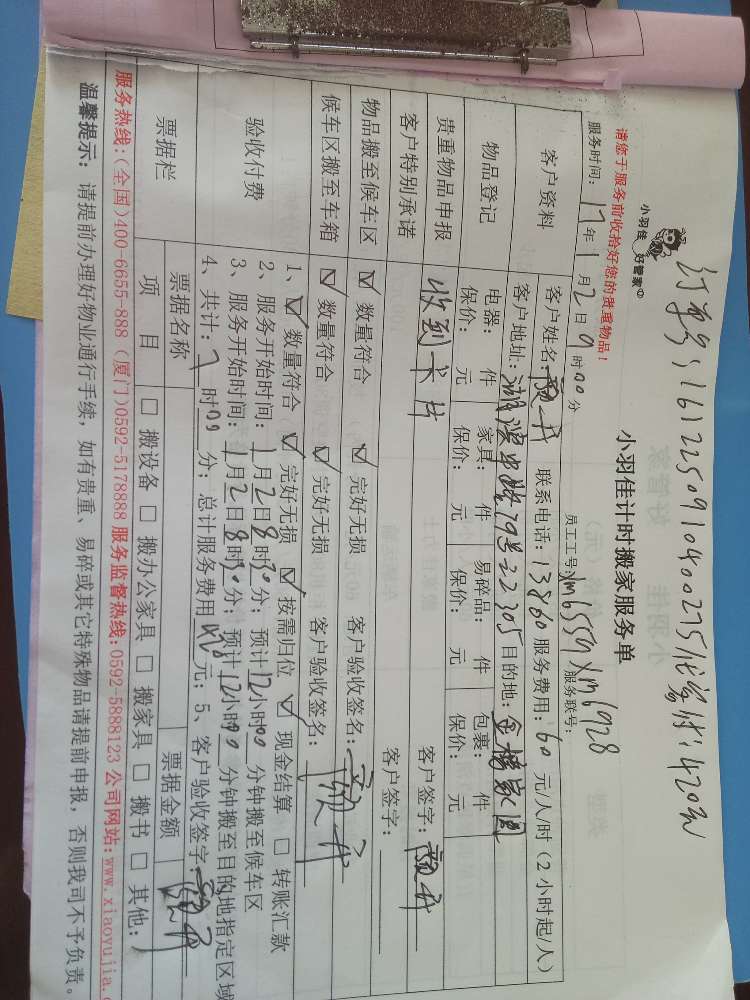 订单号:1612250910400275代订线:420元
小羽佳 好管家
小羽佳计时搬家服务单
请您于服务前收拾好您的贵重物品!
员工工号:xm6559 xm6928
服务时间:17年1月2日9时00分 服务联号:
客户资料 客户姓名: 联系电话:13860 服务费用:60元/人/时(2小时起/人)
客户地址: 305 目的地:金榜家园
物品登记 电器: 件 家具: 件 易碎品: 件 包裹: 件
保价: 元 保价: 元 保价: 元 保价: 元
贵重物品申报 收到卡片 客户签字:
客户特别承诺 客户签字:
物品搬至候车区 ☑ 数量符合 ☑ 完好无损 客户验收签名:
候车区搬至车箱 ☑ 数量符合 ☑ 完好无损 客户验收签名:
验收付费 1、☑ 数量符合 ☑ 完好无损 ☑ 按需归位 ☑ 现金结算 □ 转账汇款
2、服务开始时间:1月2日8时30分;预计12小时00分钟搬至候车区
3、服务开始时间:1月2日8时30分;预计12小时00分钟搬至目的地指定区域
4、共计:7时00分;总计服务费用 元;5、客户验收签字:
票据栏 票据名称 票据金额
项 目 □ 搬设备 □ 搬办公家具 □ 搬家具 □ 搬书 □ 其他:
服务热线:(全国)400-6655-888 (厦门)0592-5178888 服务监督热线:0592-5888123 公司网站:www.xiaoyujia.c
温馨提示: 请提前办理好物业通行手续,如有贵重、易碎或其它特殊物品请提前申报,否则我司不予负责。